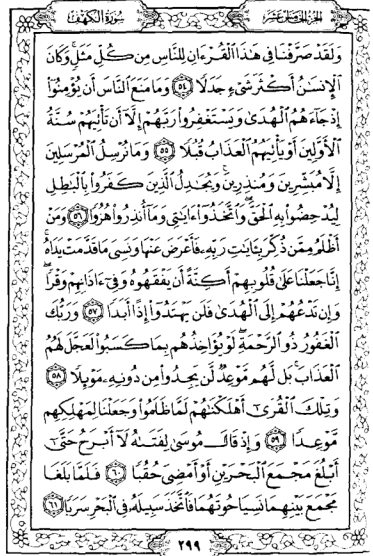 الجزء الخامس عشر
سورة الكهف
وَلَقَدْ صَرَّفْنَا فِى هَٰذَا ٱلْقُرْءَانِ لِلنَّاسِ مِن كُلِّ مَثَلٍ ۚ وَكَانَ
ٱلْإِنسَٰنُ أَكْثَرَ شَىْءٍ جَدَلًا ٥٤ وَمَا مَنَعَ ٱلنَّاسَ أَن يُؤْمِنُوٓا۟
إِذْ جَآءَهُمُ ٱلْهُدَىٰ وَيَسْتَغْفِرُوا۟ رَبَّهُمْ إِلَّآ أَن تَأْتِيَهُمْ سُنَّةُ
ٱلْأَوَّلِينَ أَوْ يَأْتِيَهُمُ ٱلْعَذَابُ قُبُلًا ٥٥ وَمَا نُرْسِلُ ٱلْمُرْسَلِينَ
إِلَّا مُبَشِّرِينَ وَمُنذِرِينَ ۚ وَيُجَٰدِلُ ٱلَّذِينَ كَفَرُوا۟ بِٱلْبَٰطِلِ
لِيُدْحِضُوا۟ بِهِ ٱلْحَقَّ ۖ وَٱتَّخَذُوٓا۟ ءَايَٰتِى وَمَآ أُنذِرُوا۟ هُزُوًا ٥٦ وَمَنْ
أَظْلَمُ مِمَّن ذُكِّرَ بِـَٔايَٰتِ رَبِّهِۦ فَأَعْرَضَ عَنْهَا وَنَسِىَ مَا قَدَّمَتْ يَدَاهُ ۚ
إِنَّا جَعَلْنَا عَلَىٰ قُلُوبِهِمْ أَكِنَّةً أَن يَفْقَهُوهُ وَفِىٓ ءَاذَانِهِمْ وَقْرًا ۖ
وَإِن تَدْعُهُمْ إِلَى ٱلْهُدَىٰ فَلَن يَهْتَدُوٓا۟ إِذًا أَبَدًا ٥٧ وَرَبُّكَ
ٱلْغَفُورُ ذُو ٱلرَّحْمَةِ ۖ لَوْ يُؤَاخِذُهُم بِمَا كَسَبُوا۟ لَعَجَّلَ لَهُمُ
ٱلْعَذَابَ ۚ بَل لَّهُم مَّوْعِدٌ لَّن يَجِدُوا۟ مِن دُونِهِۦ مَوْئِلًا ٥٨
وَتِلْكَ ٱلْقُرَىٰٓ أَهْلَكْنَٰهُمْ لَمَّا ظَلَمُوا۟ وَجَعَلْنَا لِمَهْلِكِهِم
مَّوْعِدًا ٥٩ وَإِذْ قَالَ مُوسَىٰ لِفَتَىٰهُ لَآ أَبْرَحُ حَتَّىٰٓ
أَبْلُغَ مَجْمَعَ ٱلْبَحْرَيْنِ أَوْ أَمْضِىَ حُقُبًا ٦٠ فَلَمَّا بَلَغَا
مَجْمَعَ بَيْنِهِمَا نَسِيَا حُوتَهُمَا فَٱتَّخَذَ سَبِيلَهُۥ فِى ٱلْبَحْرِ سَرَبًا ٦١
٢٩٩